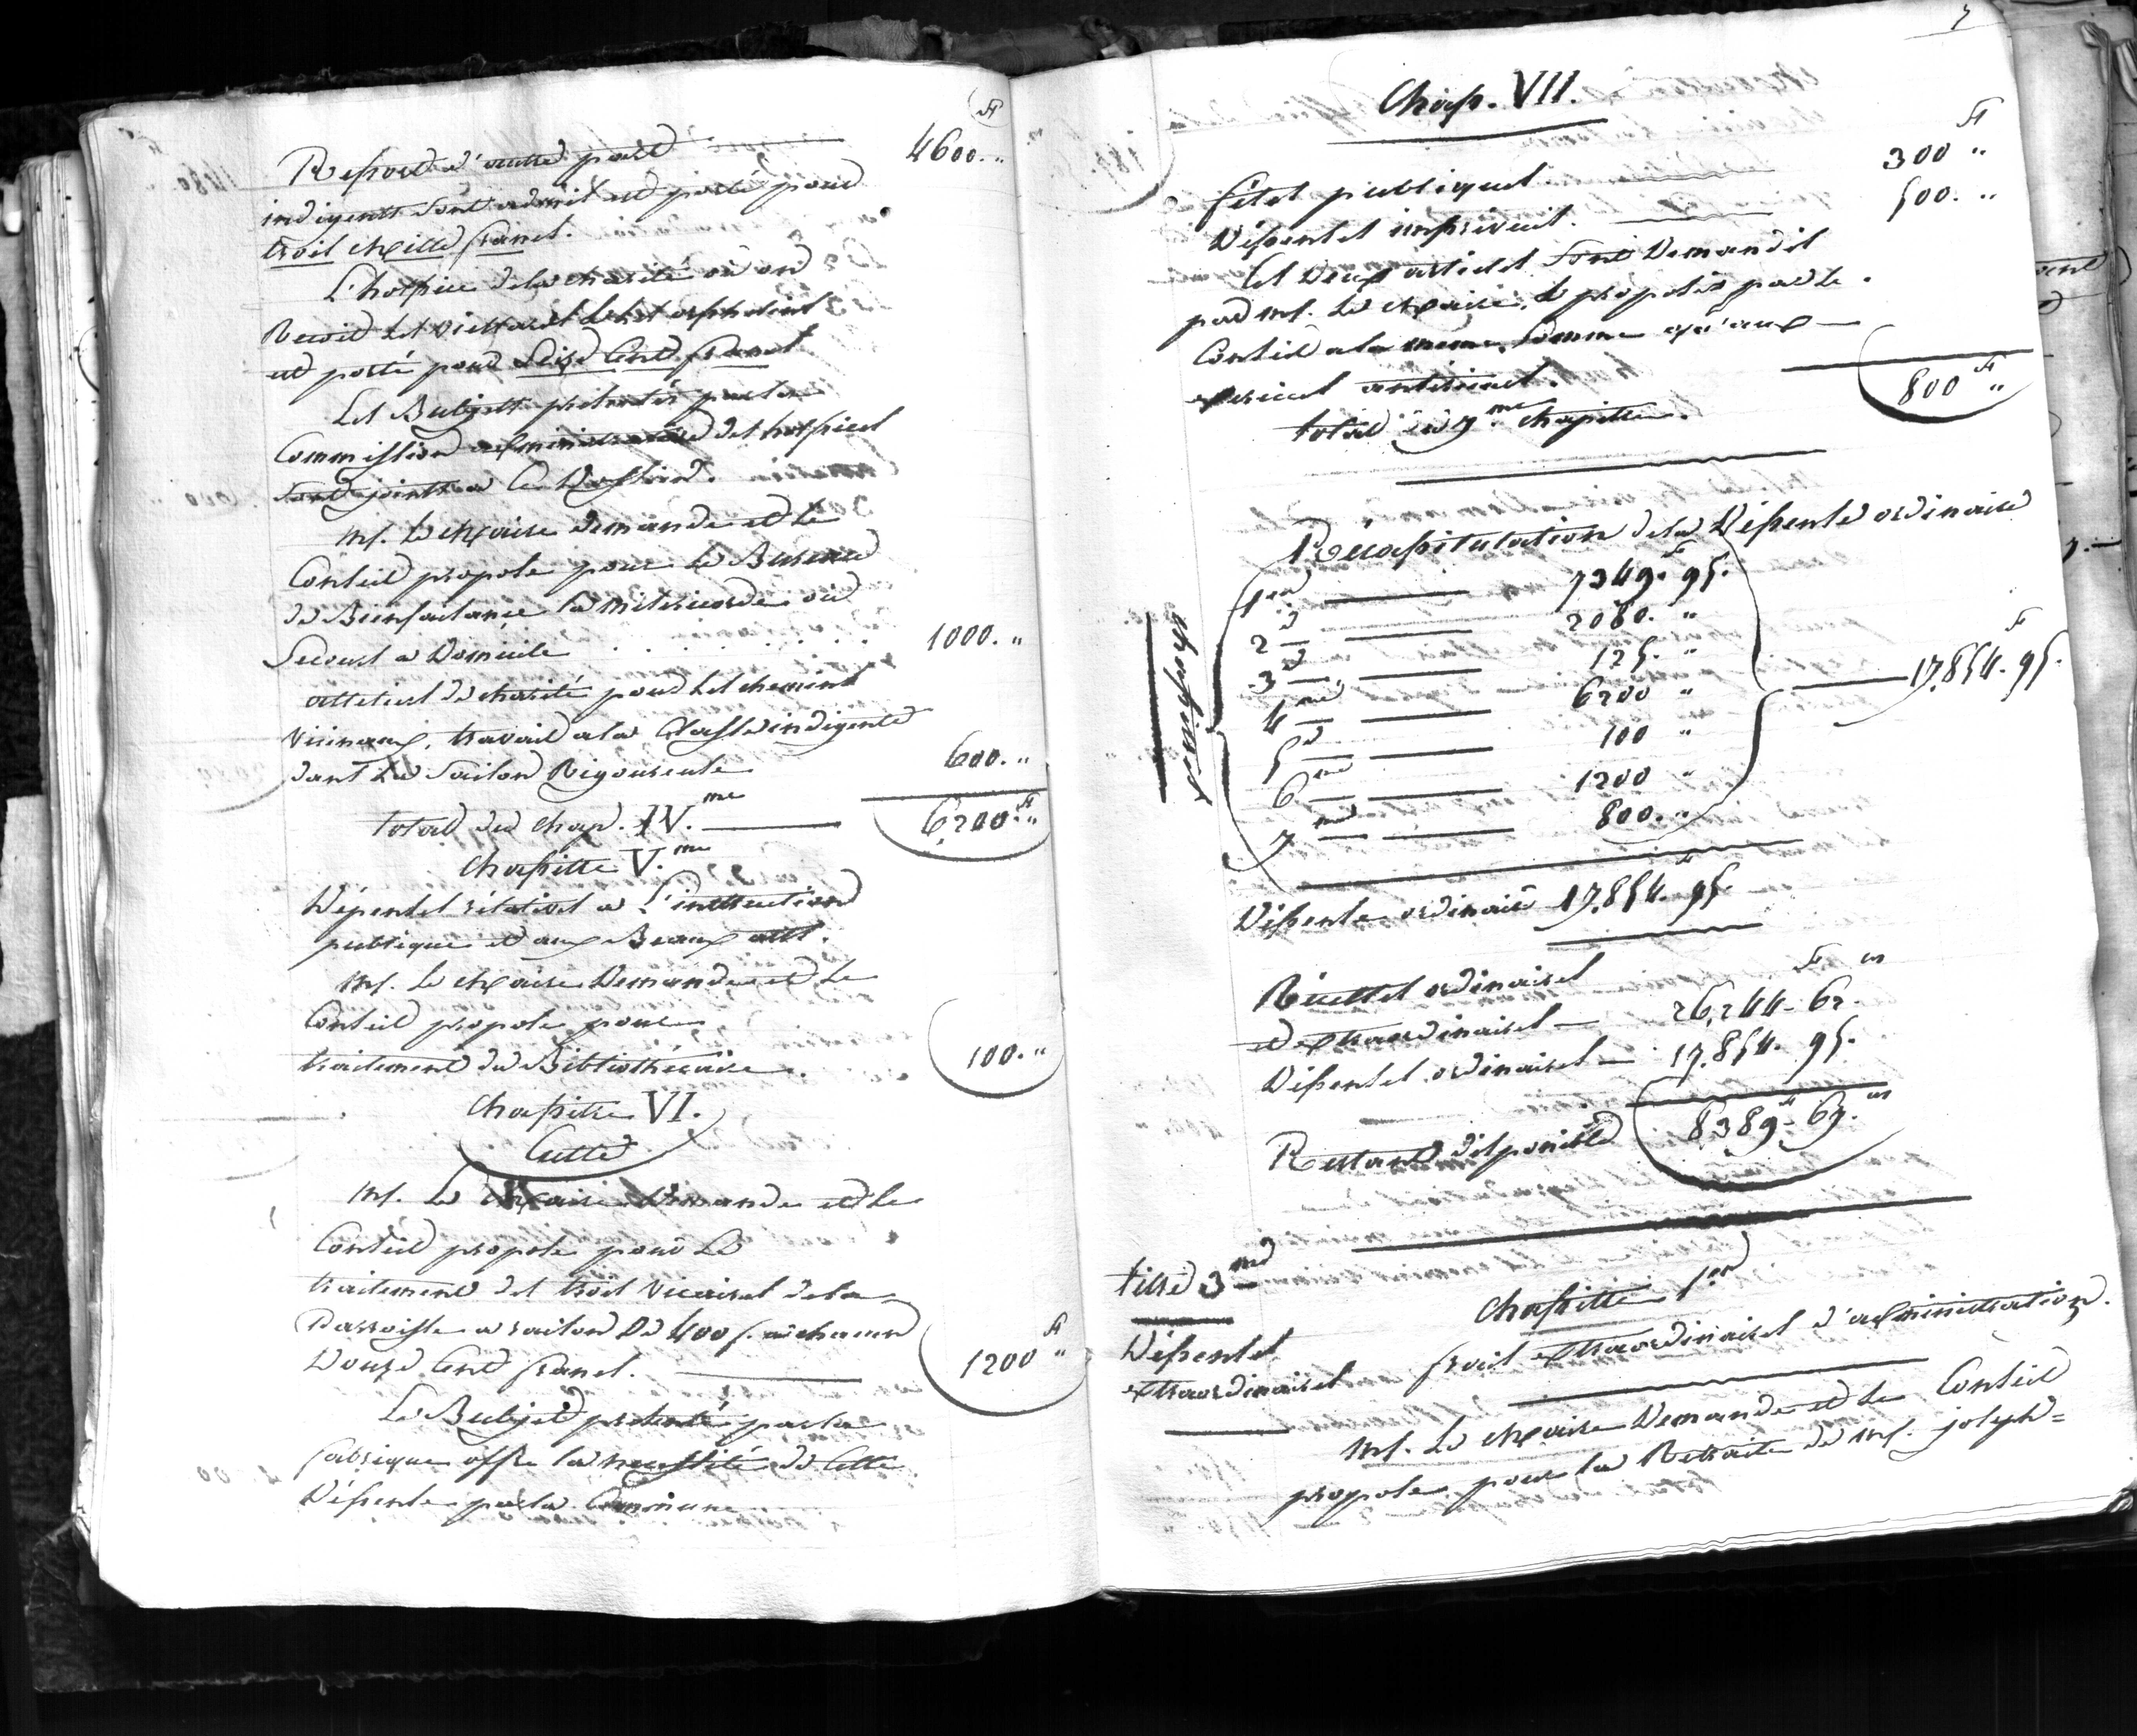 fr
Report d'autre part 4600. "
indigents sont admis est porté pour
trois Mille francs.
L'hospice de la charité où on
Recoit les vieillards et les orphelins
est porté pour Seize Cent francs
Les Budjets présentés par la
Commission administrative des hospices
sont joints a Ce Dossier.
Mr. Le Maire demande et le
Conseil propose pour le Bureau
de Bienfaisance la misericorde ou
Secours a Domicile . . . . . . . 1000. "
atteliers de charité pour les chemins
vicinaux, travail a la Classe indigente
dans La Saison Rigoureuse 600. "
total du chap. IV.me 6,200 fr "
Chapitre V.me
Dépenses rélatives a L'instruction
publique et aux Beaux arts.
Mr. Le Maire Demande et le
Conseil propose pour
traitement du Bibliothécaire. 100. "
Chapitre VI.
Culte
Mr. Le Maire Demande et le
Conseil propose pour Le
traitement des trois vicaires de la
Parroisse a raison De 400 f. a chacun
Douze Cent francs. 1200 fr "
Le Budjet présenté par la
fabrique offre la necessité de Cette
Dépense par la Commune
7
Chap. VII.
fr
fêtes publiques 300 "
Dépenses imprévues. 500. "
Ces Deux articles sont Demandés
par Mr. Le Maire, & proposés par le
Conseil a la meme Somme qu'aux
exercices anterieurs.
total du 7.me chapitre. 800 fr "
Récapitulation de la Dépense ordinaire
chapitres
1er 7349. fr 95.
2e 2080. "
3e 125. "
4me 6200 "
5e 100 "
6me 1200 "
7me 800. "
17,854. fr 95.
Dépense ordinaire 17,854. fr 95.
Récettes ordinaires fr cs
et extraordinaires 26,244. 62.
Dépenses ordinaires 17,854. 95.
Restant disponible 8389. fr 67. cs
titre 3me
Dépenses
extraordinaires
Chapitre 1er
frais extraordinaires d'administration.
Mr. Le Maire Demande et le Conseil
propose pour la Retraite de Mr. joseph=